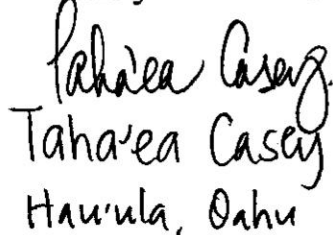 Taha'ea Casey
Taha'ea Casey
Hau'ula, Oahu